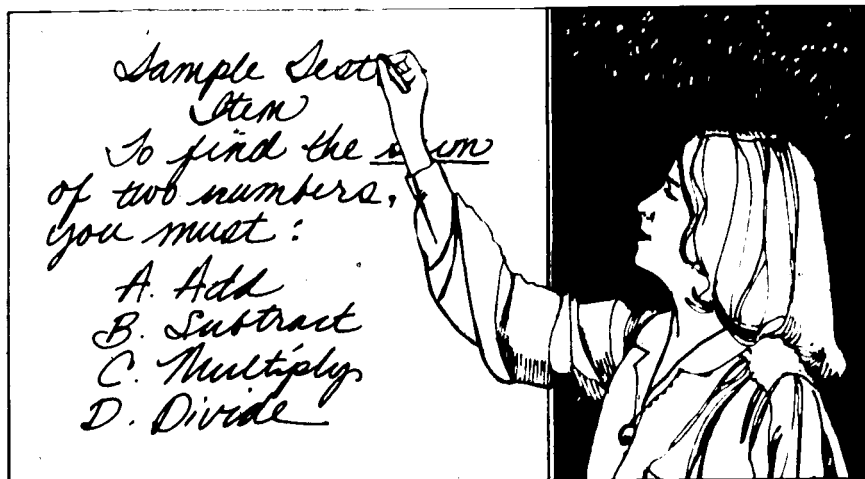 Sample Test
Item
To find the sum
of two numbers,
you must:
A. Add
B. Subtract
C. Multiply
D. Divide